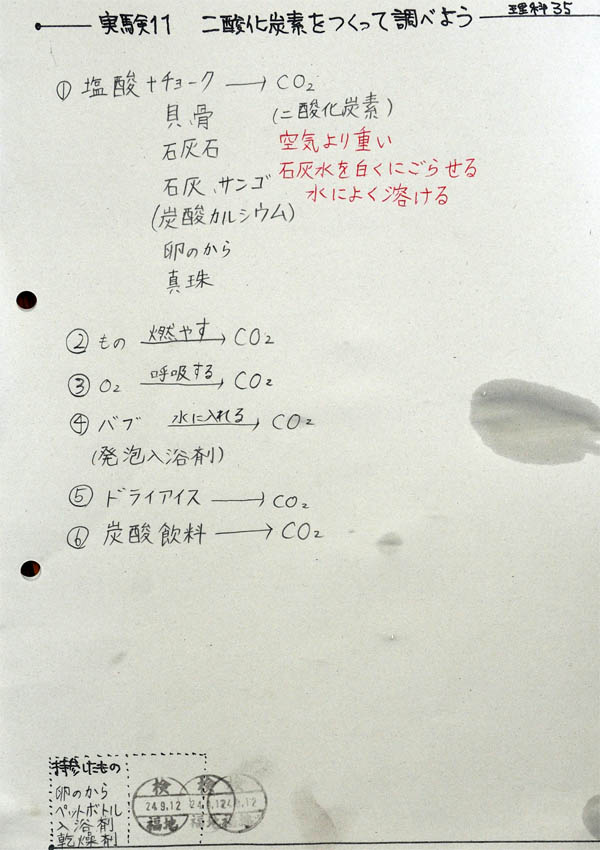 理科35
実験11 二酸化炭素をつくって調べよう
① 塩酸+チョーク → CO₂
貝、骨 (二酸化炭素)
石灰石 空気より重い
石灰、サンゴ 石灰水を白くにごらせる
(炭酸カルシウム) 水によく溶ける
卵のから
真珠
② もの 燃やす→ CO₂
③ O₂ 呼吸する→ CO₂
④ バブ 水に入れる→ CO₂
(発泡入浴剤)
⑤ ドライアイス → CO₂
⑥ 炭酸飲料 → CO₂
持参したもの
卵のから
ペットボトル
入浴剤
乾燥剤
検
24.9.12
福地